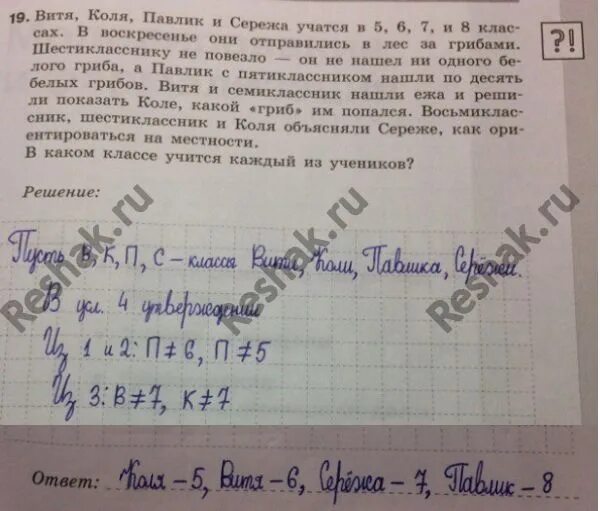 19. Витя, Коля, Павлик и Сережа учатся в 5, 6, 7, и 8 клас-
сах. В воскресенье они отправились в лес за грибами.
Шестикласснику не повезло — он не нашел ни одного бе-
лого гриба, а Павлик с пятиклассником нашли по десять
белых грибов. Витя и семиклассник нашли ежа и реши-
ли показать Коле, какой «гриб» им попался. Восьмиклас-
сник, шестиклассник и Коля объясняли Сереже, как ори-
ентироваться на местности.
В каком классе учится каждый из учеников?
?!
Решение:
Пусть В, К, П, С – классы Вити, Коли, Павлика, Серёжи.
В усл. 4 утверждения
Из 1 и 2: П ≠ 6, П ≠ 5
Из 3: В ≠ 7, К ≠ 7
Ответ: Коля – 5, Витя – 6, Серёжа – 7, Павлик – 8
Reshak.ru
Reshak.ru
Reshak.ru